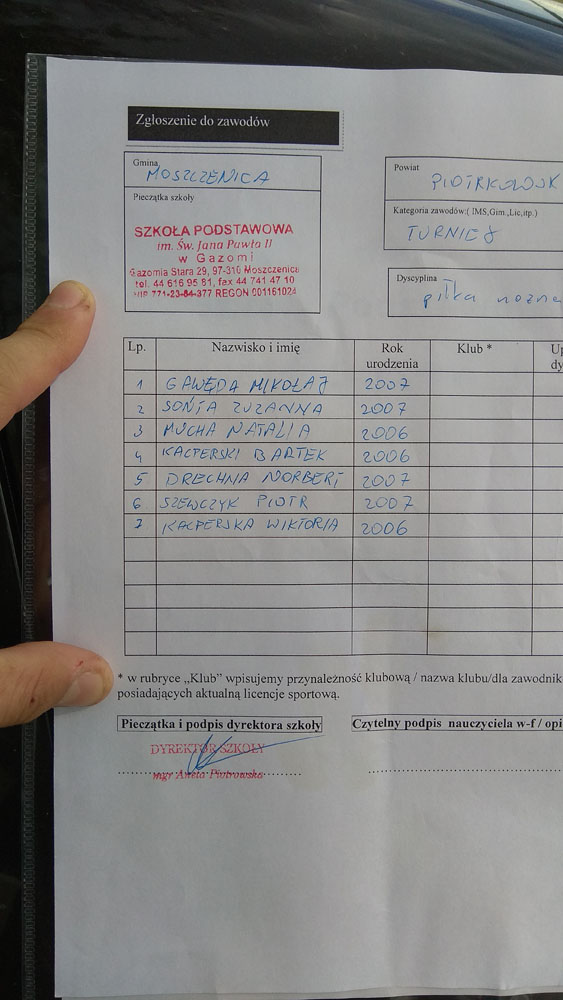 Zgłoszenie do zawodów
Gmina
MOSZCZENICA
Pieczątka szkoły
SZKOŁA PODSTAWOWA
im. Św. Jana Pawła II
w Gazomi
Gazomia Stara 29, 97-310 Moszczenica
tel. 44 616 95 81, fax 44 741 47 10
NIP 771-23-84-377 REGON 001161024
Powiat
PIOTRKOWSK
Kategoria zawodów:( IMS,Gim.,Lic,itp.)
TURNIEJ
Dyscyplina
piłka nożna
Lp. Nazwisko i imię Rok urodzenia Klub * Up dy
1 GAWĘDA MIKOŁAJ 2007
2 SONTA ZUZANNA 2007
3 MUCHA NATALIA 2006
4 KACPERSKI BARTEK 2006
5 DRECHNA NORBERT 2007
6 SZEWCZYK PIOTR 2007
7 KACPERSKA WIKTORIA 2006
* w rubryce „Klub” wpisujemy przynależność klubową / nazwa klubu/dla zawodnik
posiadających aktualną licencje sportową.
Pieczątka i podpis dyrektora szkoły
Czytelny podpis nauczyciela w-f / opi
DYREKTOR SZKOŁY
mgr Aneta Piotrowska